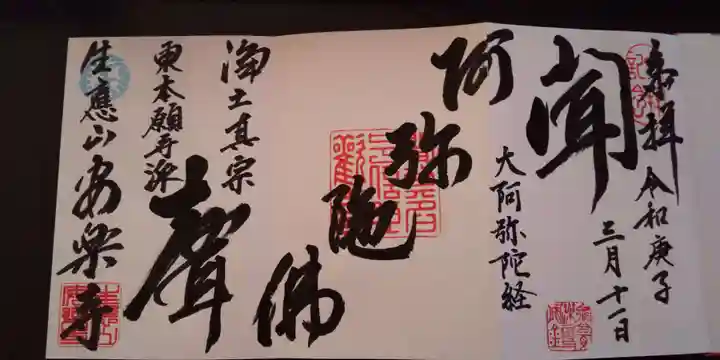 奉拝
令和庚子
三月十一日
聞
大阿弥陀経
阿弥陀佛
聲
浄土真宗
東本願寺派
生應山安楽寺